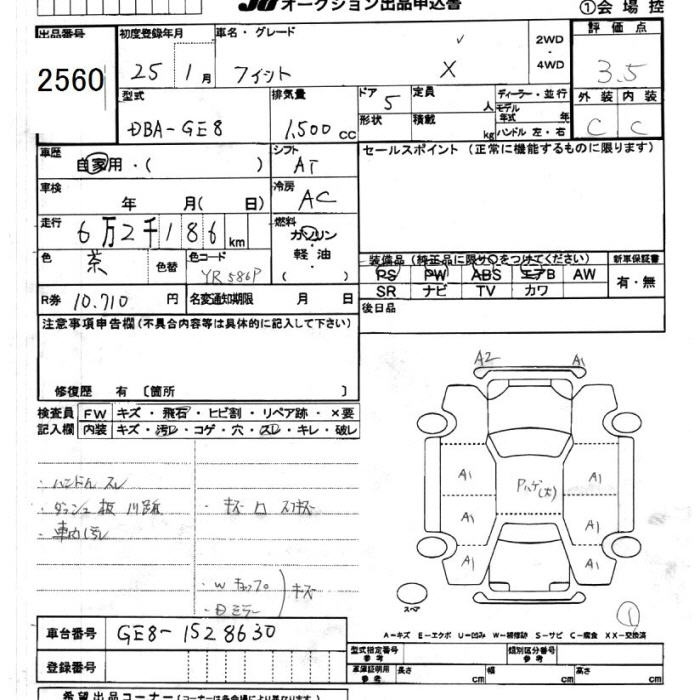 オークション出品申込書
①会場控
出品番号 初度登録年月 車名・グレード 2WD・4WD 評価点
2560 25 1月 フィット X 3.5
型式 排気量 ドア 定員 ディーラー・並行 外装 内装
DBA-GE8 1,500cc 5 人 モデル年式 年 C C
形状 積載 kg ハンドル 左・右
車歴 自家用・( ) シフト AT セールスポイント (正常に機能するものに限ります)
車検 年 月( 日) 冷房 AC
走行 6万2千186km 燃料 ガソリン・軽油・( )
色 茶 色替 色コード YR586P
装備品 (純正品に限り○をつけてください) 新車保証書
PS PW ABS エアB AW 有・無
SR ナビ TV カワ
R券 10,710円 名変通知期限 月 日 後日品
注意事項申告欄 (不具合内容等は具体的に記入して下さい)
修復歴 有 〔箇所 〕
検査員 FW キズ・飛石・ヒビ割・リペア跡・×要
記入欄 内装 キズ・汚レ・コゲ・穴・スレ・キレ・破レ
・ハンドル スレ
・車内汚レ
キズ
A2 A1
A1 A1
A1 A1
A1 A1
スペア
①
A-キズ E-エクボ U-凹み W-補修跡 S-サビ C-腐食 XX-交換済
車台番号 GE8-1528630
登録番号
型式指定番号 参考 類別区分番号 参考
車庫証明用 参考 長さ 幅 高さ
希望出品コーナー